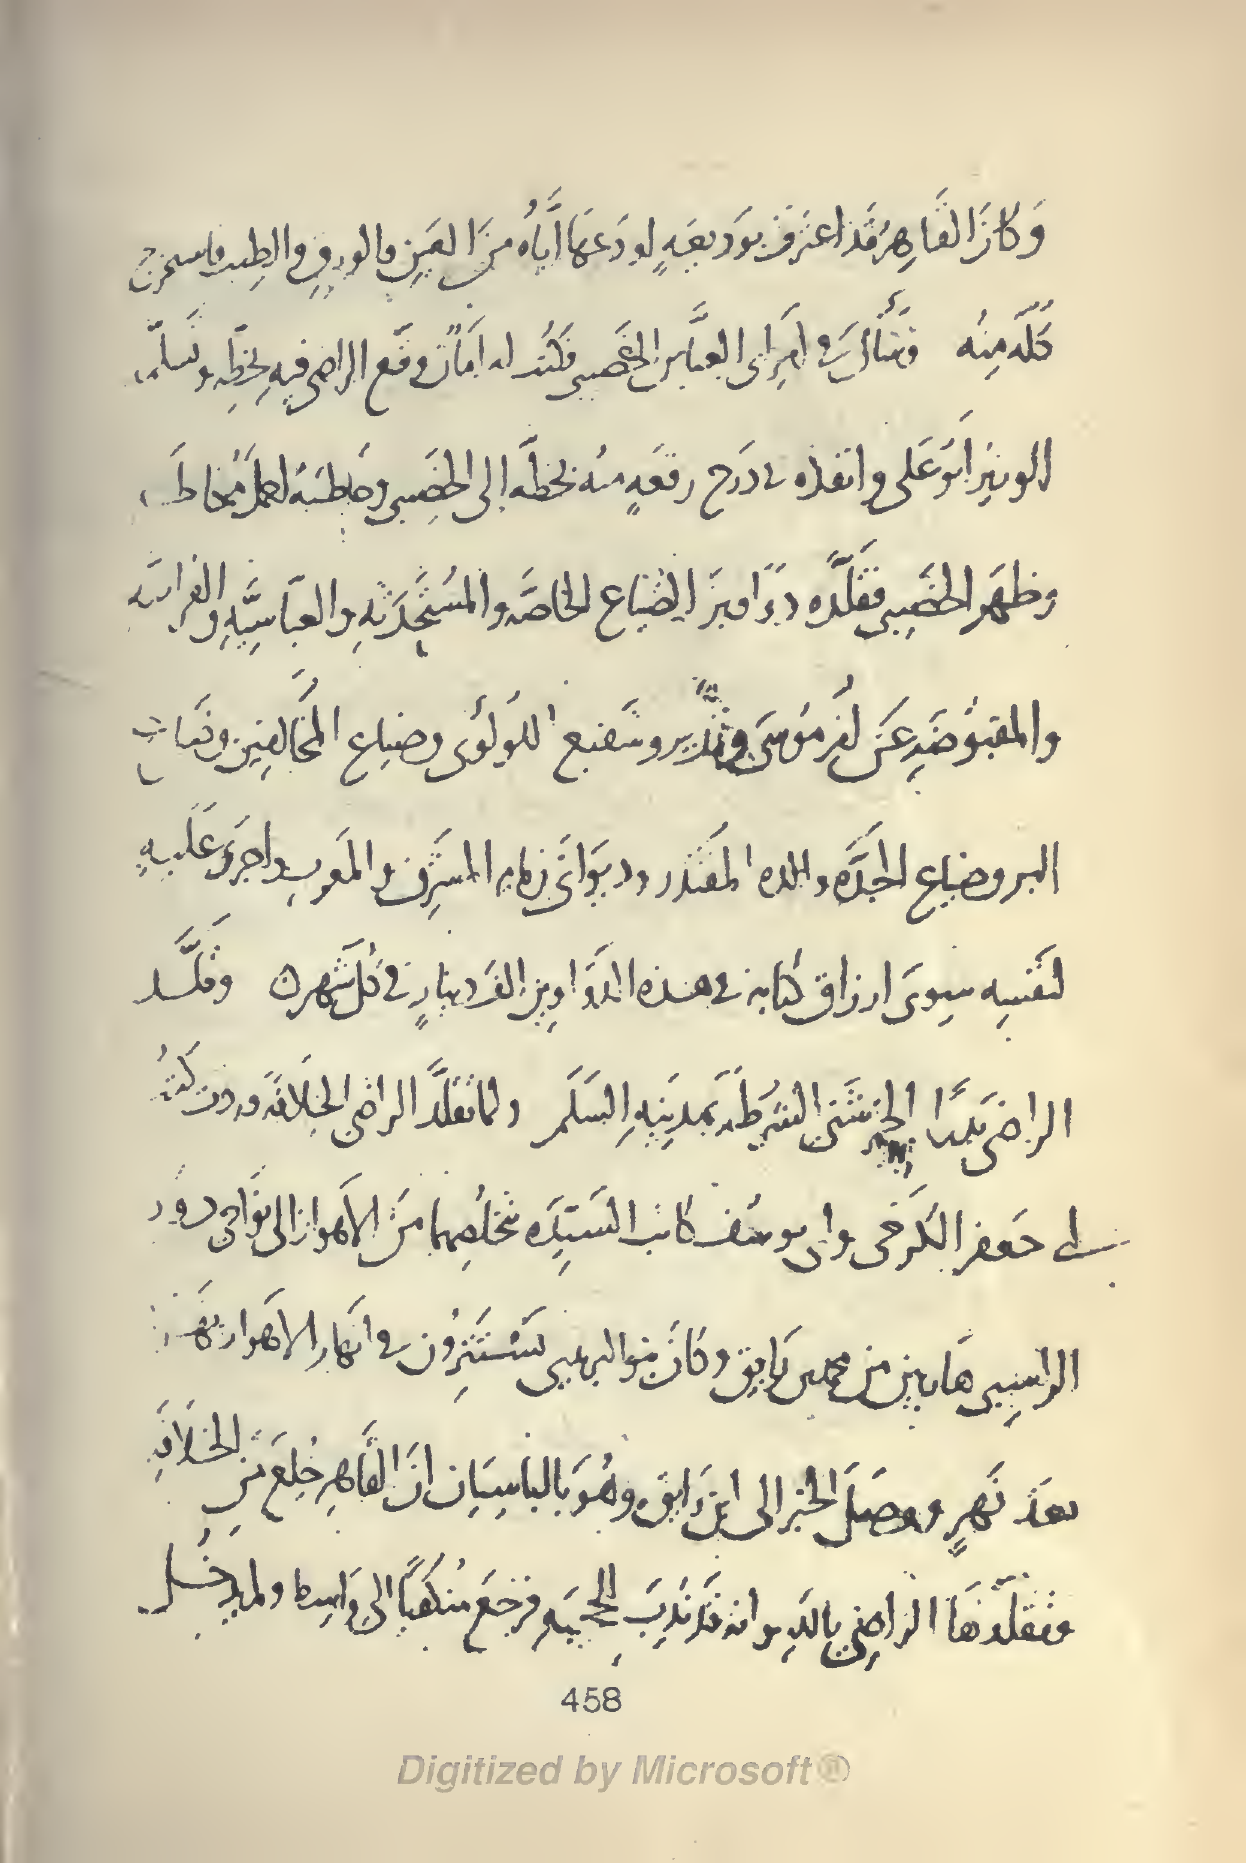 وَكَانَ القَاهِرُ قَد اعتَرَفَ بِوَدِيعَةٍ اودَعَهَا ايَّاهُ مِنَ العَينِ والورق والطيب فاستخرج
كلّه مِنهُ وسَأَلَ في امر ابى العبَّاس الخَصيبى فكتب له امَاناً ووقّع الراضى فيهِ بخطّه وتسلّمه
الوزير ابُو عَلى وانفذه في دَرج رقعَةٍ منه بخطّه الى الخَصِيبى وخاطبَهُ اجمل مُخاطبه
وظهَر الخصَيبى فقلّده دَوَاوينَ الضيَاع الخاصَّه والمُستَحدثهِ والعبّاسِيّهِ والفراتيه
والمقبُوضَهِ عَن امّ مُوسَى ونذير وشفيع اللولُوى وضياع المُخَالِفين وضياع
البر وضياع الجدَّه والده المقتَدر وديوانَى زمام المشرِق والمغرب واجرَى عَليهِ
لنفسِه سِوى ارزاق كتّابه في هذه الدَوَاوينِ الفَ دينارٍ في كل شهر ۞ وقلّد
الراضى بَدراً الخرشنى الشرطَة بمدينهِ السَلم ولما تقلّد الراضى الخلافَه وردت كتبُ
ابى جَعفر الكَرخى وابى يوسُف كاتب السَيّدَه بتخلّصهما من الاهواز الى نواحى دور
الراسِبى هَاربَين من محمد بن رايق وكَانَ بنو البريدى يَسْتَتِرُون في انهار الاهواز
بعد نَهرٍ ووصَل الخبر الى ابنِ رَايق وهُوَ بالباسِيَان انّ القَاهِر خُلِعَ مِن الخلافَهِ
وتقلّدهَا الراضى بالله وانه قد نُدِبَ للحجبَهِ فرجَعَ مُنكفياً الى وَاسِط ولم يَدخُل
458
Digitized by Microsoft®